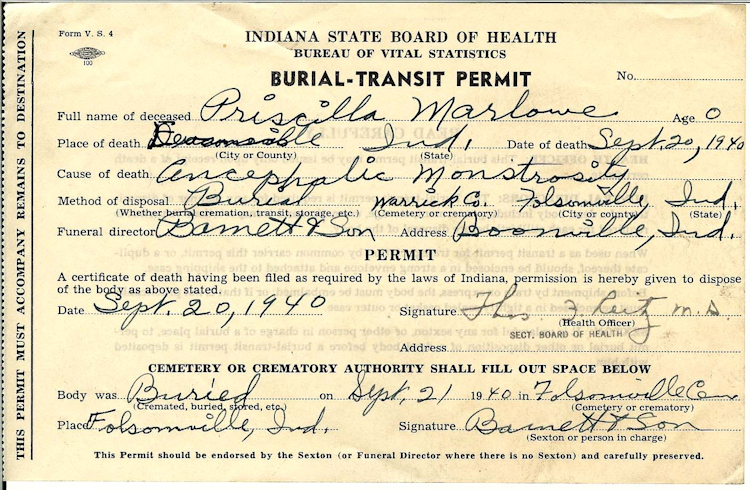 Form V. S. 4
100
INDIANA STATE BOARD OF HEALTH
BUREAU OF VITAL STATISTICS
BURIAL-TRANSIT PERMIT
No.
Full name of deceased Priscilla Marlowe Age 0
Place of death Ind. Date of death Sept. 20, 1940
(City or County) (State)
Cause of death Ancephalic Monstrosity
Method of disposal Burial Warrick Co. Folsomville, Ind.
(Whether burial cremation, transit, storage, etc.) (Cemetery or crematory) (City or county) (State)
Funeral director Barnett & Son Address Boonville, Ind.
PERMIT
A certificate of death having been filed as required by the laws of Indiana, permission is hereby given to dispose
of the body as above stated.
Date Sept. 20, 1940 Signature Thos. J. M.D
(Health Officer)
SECT. BOARD OF HEALTH
Address
CEMETERY OR CREMATORY AUTHORITY SHALL FILL OUT SPACE BELOW
Body was Buried on Sept. 21 1940 in Folsomville Cem
(Cremated, buried, stored, etc.) (Cemetery or crematory)
Place Folsomville, Ind. Signature Barnett & Son
(Sexton or person in charge)
This Permit should be endorsed by the Sexton (or Funeral Director where there is no Sexton) and carefully preserved.
THIS PERMIT MUST ACCOMPANY REMAINS TO DESTINATION